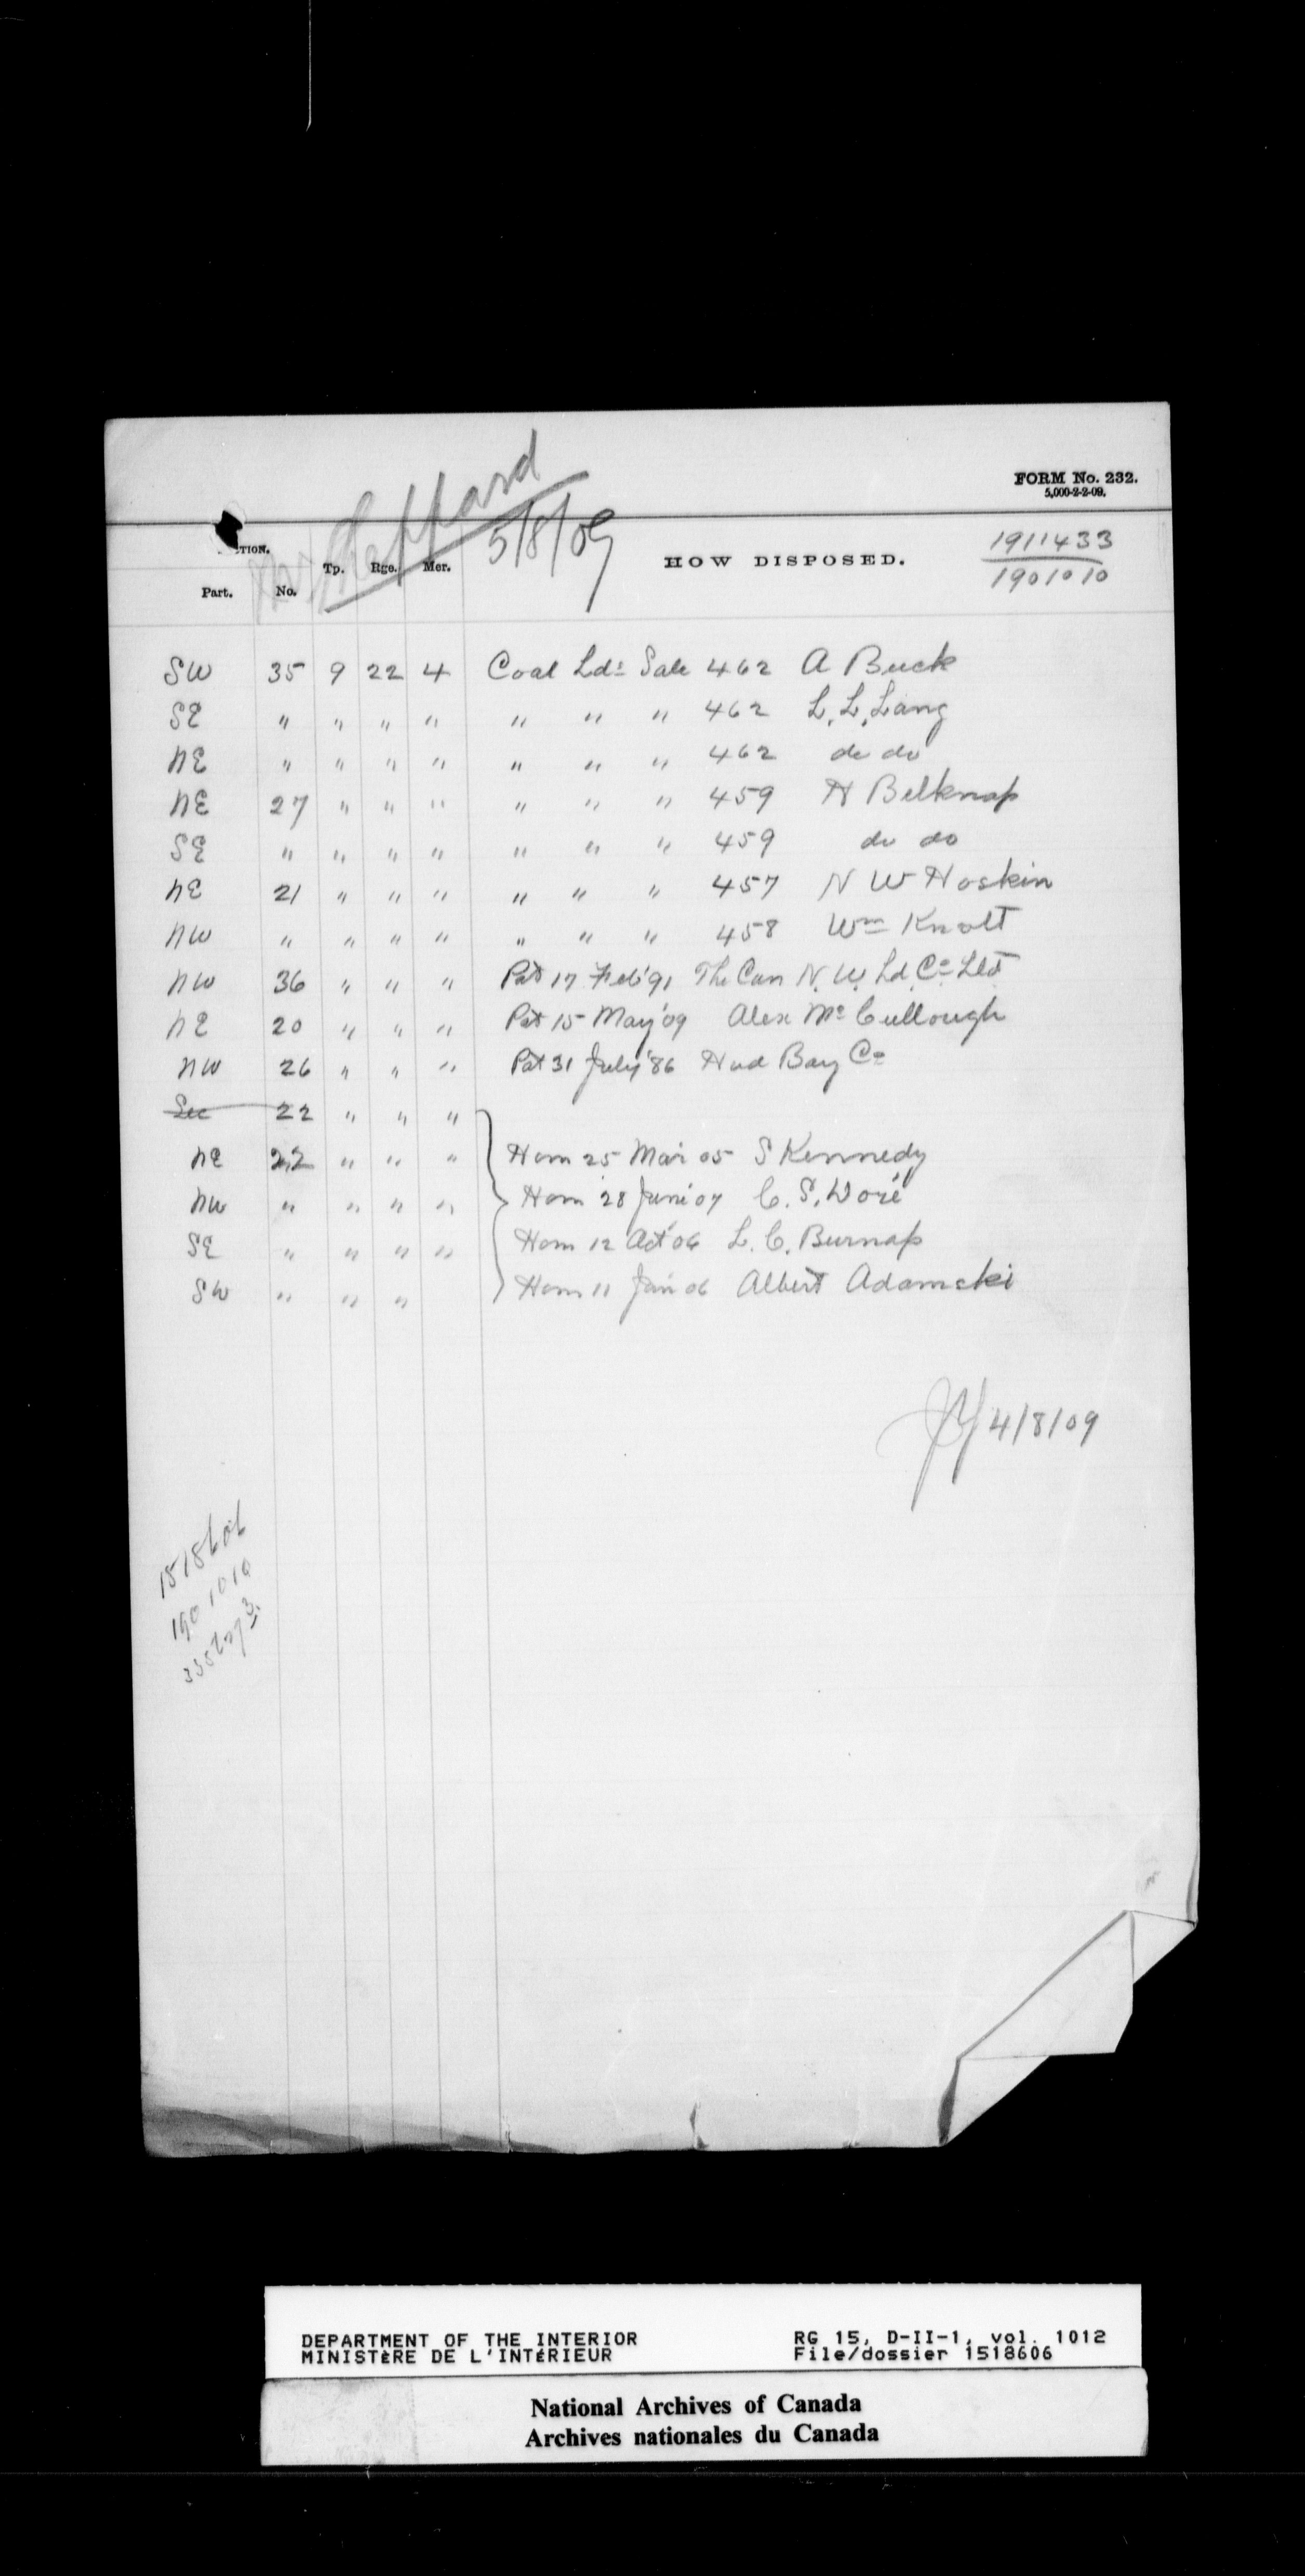 FORM No. 232.
5,000-2-2-09.
Mr Sheppard
5/8/09
TION.
Part. No. Tp. Rge. Mer. HOW DISPOSED.
1911433
1901010
SW 35 9 22 4 Coal Lds Sale 462 A Buck
SE " " " " " " " 462 L. L. Lang
NE " " " " " " " 462 do do
NE 27 " " " " " " 459 H Belknap
SE " " " " " " " 459 do do
NE 21 " " " " " " 457 N W Hoskin
NW " " " " " " " 458 Wm Knolt
NW 36 " " " Pat 17 Feb'91 The Can N. W. Ld. Co Ltd
NE 20 " " " Pat 15 May'09 Alex McCullough
NW 26 " " " Pat 31 July'86 Hud Bay Co
Sec 22 " " "
NE 22 " " " Hom 25 Mar 05 S Kennedy
NW " " " " Hom 28 June'07 C. S. Doré
SE " " " " Hom 12 Oct'06 L. C. Burnap
SW " " " Hom 11 Jan'06 Albert Adamski
4/8/09
1518606
1901010
DEPARTMENT OF THE INTERIOR
MINISTÈRE DE L'INTÉRIEUR
RG 15, D-II-1, vol. 1012
File/dossier 1518606
National Archives of Canada
Archives nationales du Canada